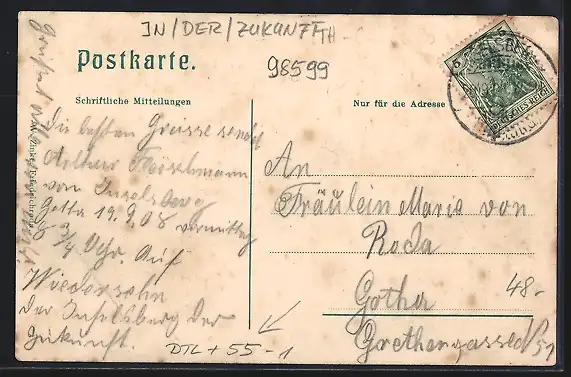 IN/DER/ZUKUNFT
Postkarte.
98599
Schriftliche Mitteilungen
Nur für die Adresse
Die besten Grüsse sendet
Arthur Fleischmann
vom Inselsberg
Gotha 19.9.08 vormittag
8 3/4 Uhr. Auf
Wiedersehn
der Inselsberg der
Zukunft.
An
Fräulein Marie von
Roda
Gotha
48.-
DTL + 55 - 1
DEUTSCHES REICH
5